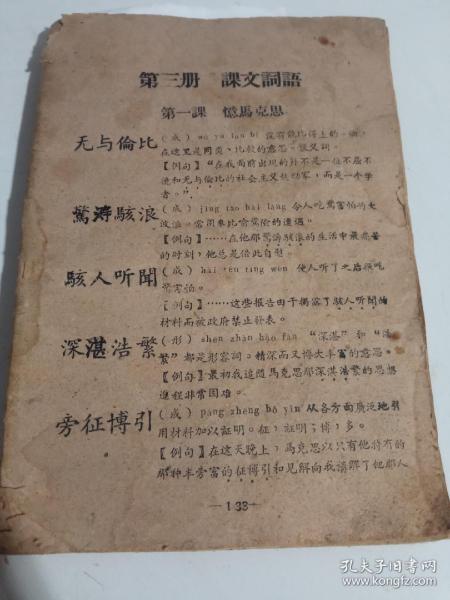 第三册 課文詞語
第一課 憶馬克思
无与倫比 (成) wú yú lún bǐ 沒有能比得上的。倫,
在这里是同类、比較的意思。褒义詞。
【例句】“在我面前出現的并不是一位不屈不
饒和无与倫比的社会主义鼓动家,而是一个学
者。”
驚濤駭浪 (成) jīng tāo hài làng 令人吃驚害怕的大
波浪。常用来比喻驚險的遭遇。
【例句】……在他那驚濤駭浪的生活中最痛苦
的时刻,他总是借此自慰。
駭人听聞 (成) hài rén tīng wén 使人听了之后
驚害怕。
【例句】……这些报告由于揭露了駭人听聞的
材料而被政府禁止發表。
深湛浩繁 (形) shēn zhàn hào fán “深湛”和“浩
繁”都是形容詞。精深而又博大丰富的意思。
【例句】最初我追随馬克思那深湛浩繁的思想
進程非常困难。
旁征博引 (成) páng zhēng bó yǐn 从各方面广泛地引
用材料加以証明。征,証明;博,多。
【例句】在这天晚上,馬克思以只有他特有的
那种丰富的征博引和見解向我講解了他那人
—133—
孔夫子旧书网
www.kongfz.com